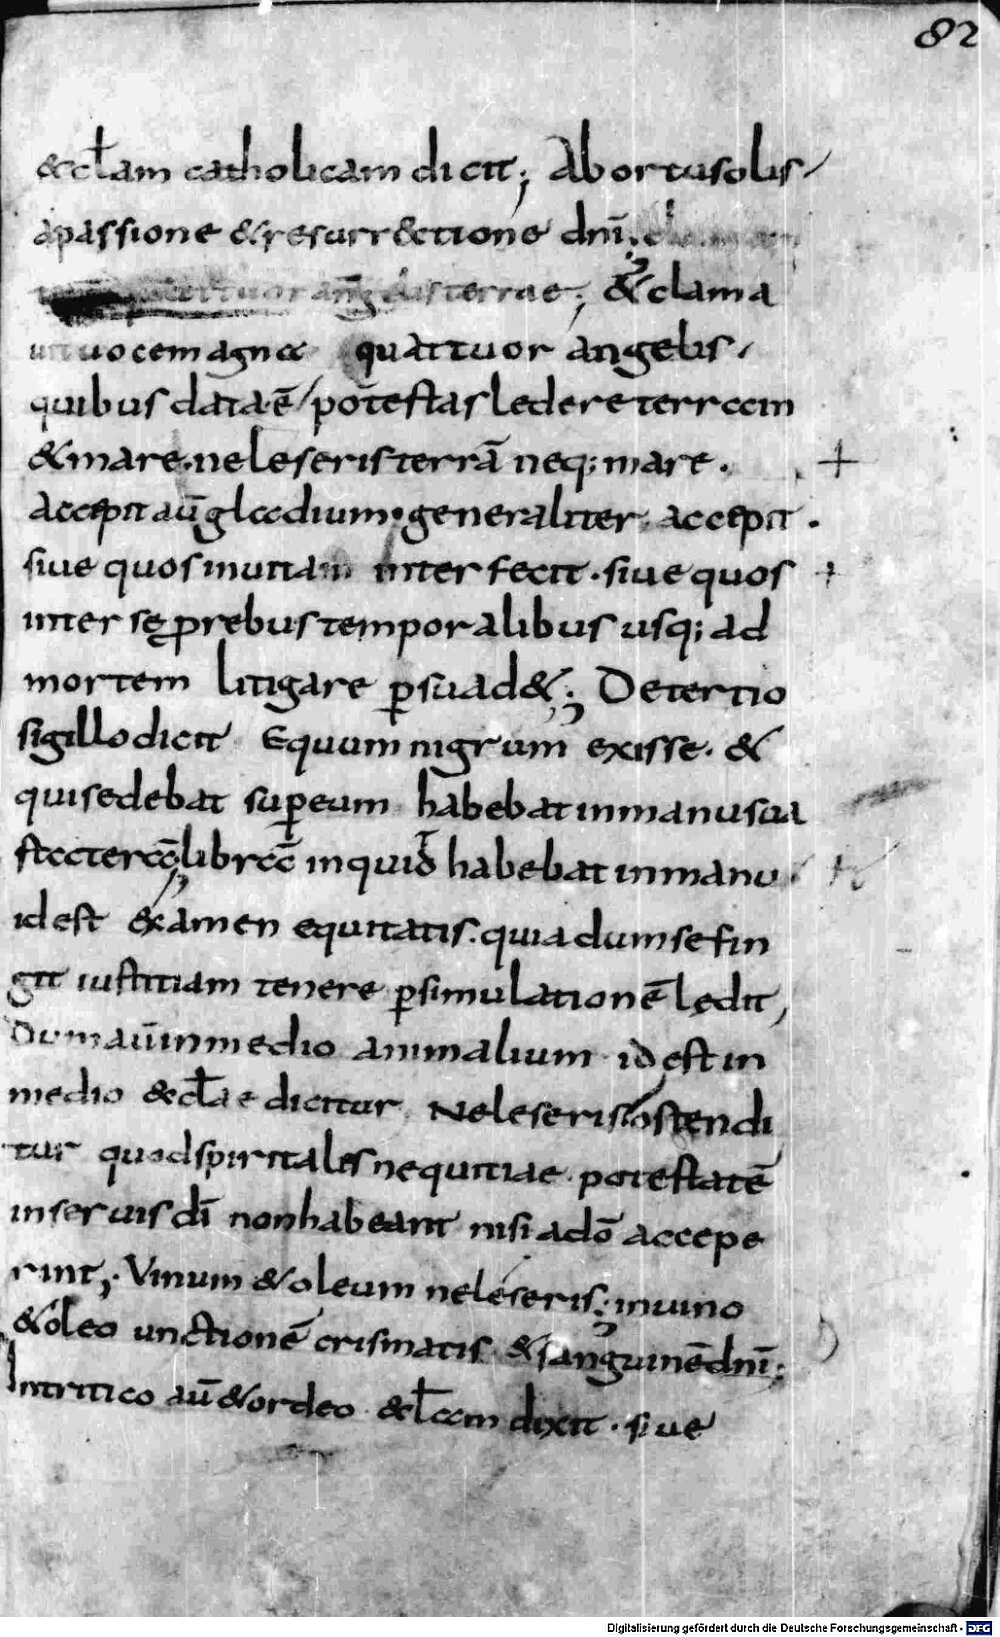 82
&cl̄am catholicam dicit; Abortusolis
apassione &resurr&ctione dnī.
terrae; &clama
uit uocem agna quattuor angelis,
quibus data ē potestas ledere terram
&mare. neleseris terrā neq; mare.
accepit aū gladium. generaliter accepit.
siue quos inuitam interfecit. siue quos
inter sę prebus temporalibus usq; ad
mortem litigare psuad&; De tertio
sigillo dicit Equum nigrum exisse. &
qui sedebat supeum habebat inmanu sua
staterā; librā inquid habebat inmanu.
id est examen equitatis. quia dum se fin
git iustitiam tenere psimulationē lędit,
Dum aū inmedio animalium id est in
medio &cl̄ae dicitur, Neleseris ostendi
tur quod spiritalis nequitiae potestatē
inseruis dī nonhabeant nisi adō accepe
rint; Vinum &oleum neleseris; inuino
&oleo unctionē crismatis &sanguinē dnī;
Intritico aū &ordeo &cl̄am dixit. siue
Digitalisierung gefördert durch die Deutsche Forschungsgemeinschaft - DFG